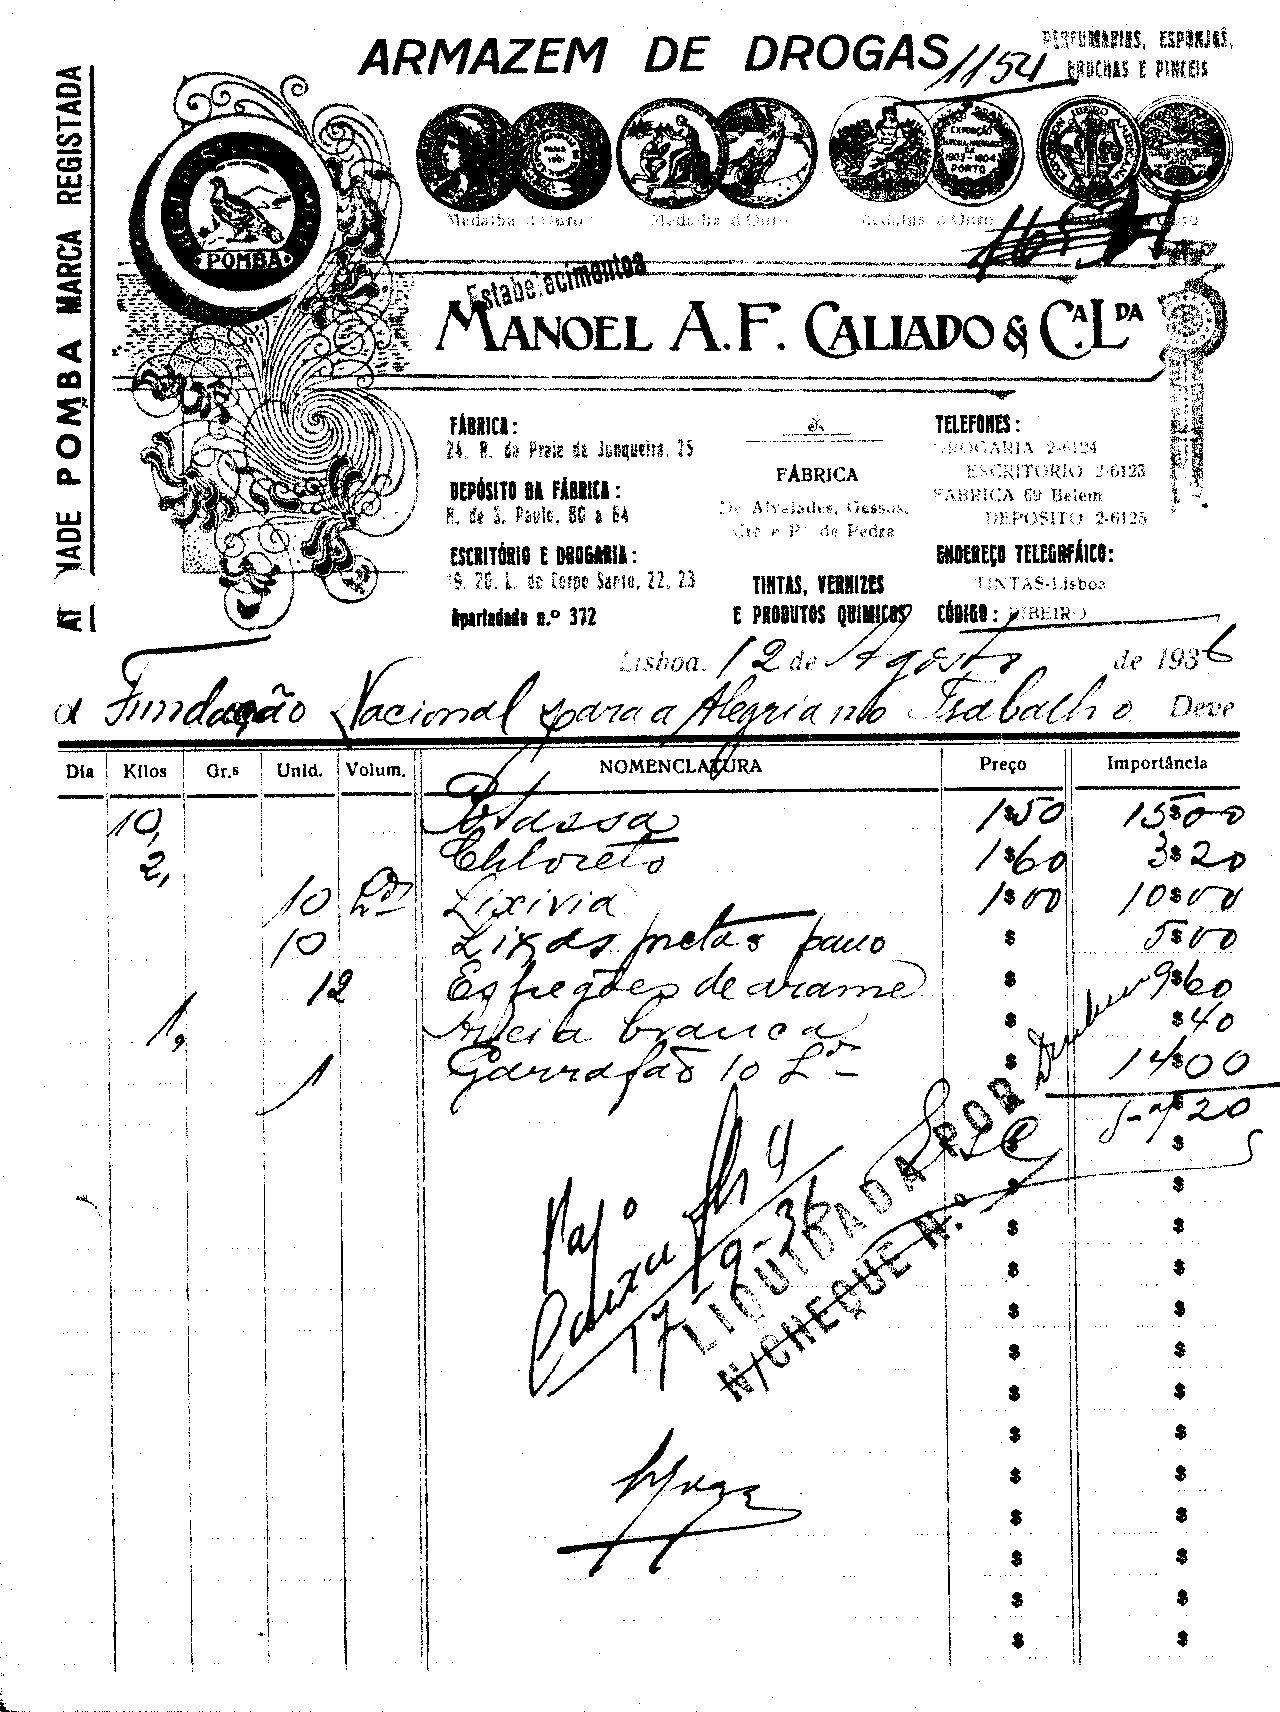 ARMAZEM DE DROGAS
1154
PERFUMARIAS, ESPONJAS,
BROCHAS E PINCEIS
MARCA REGISTADA
POMBA
TRADE
POMBA
PARIS
1901
EXPOSIÇÃO
1903-1904
PORTO
Medalha d'Ouro
Medalha d'Ouro
Medalha d'Ouro
Estabelecimentos
MANOEL A. F. CALIADO & Cª. Lᴰᴬ
FÁBRICA:
24, R. da Praia da Junqueira, 25
DEPÓSITO DA FÁBRICA:
R. de S. Paulo, 60 a 64
ESCRITÓRIO E DROGARIA:
19, 20, L. do Corpo Santo, 22, 23
Apartadado n.º 372
FÁBRICA
De Alvaiades, Gessos,
Cré e Pó de Pedra
TINTAS, VERNIZES
E PRODUTOS QUIMICOS
TELEFONES:
DROGARIA 2-6124
ESCRITORIO 2-6123
FABRICA 69 Belem
DEPOSITO 2-6125
ENDEREÇO TELEGRFÁICO:
TINTAS-Lisboa
CÓDIGO: RIBEIRO
Lisboa, 12 de Agosto de 1936
a Fundação Nacional para a Alegria no Trabalho Deve
Dia Kilos Gr.s Unid. Volum. NOMENCLATURA Preço Importância
10, Potassa 1$50 15$00
2, Chloreto 1$60 3$20
10 Lds Lixivia 1$00 10$00
10 Lixas pretas pano $ 5$00
12 Esfregões de arame $ 9$60
1, Areia branca $ $40
1 Garrafão 10 Lds $ 14$00
57$20
LIQUIDADA POR
N/CHEQUE N.º
Pago
Caixa
17-9-36